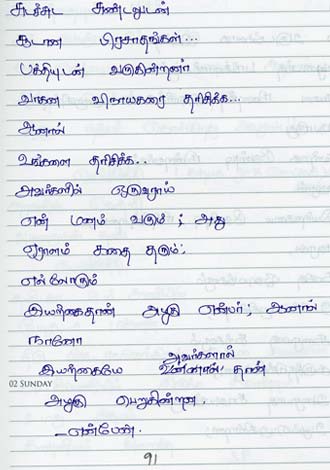 சுடச்சுட சுண்டலுடன்
சூடான பிரசாதங்கள்...
பக்தியுடன் வருகின்றனர்
வாகன விநாயகரை தரிசிக்க...
ஆனால்
உங்களை தரிசிக்க..
அவர்களில் ஒருவராய்
என் மனம் வரும்; அது
ஏராளம் கதை தரும்;
எல்லோரும்
இயற்கைதான் அழகு என்பர்; ஆனால்
நானோ
அவர்களால்
இயற்கையே உன்னால் தான்
02 SUNDAY
அழகு பெறுகின்றன.
-என்பேன்.
91